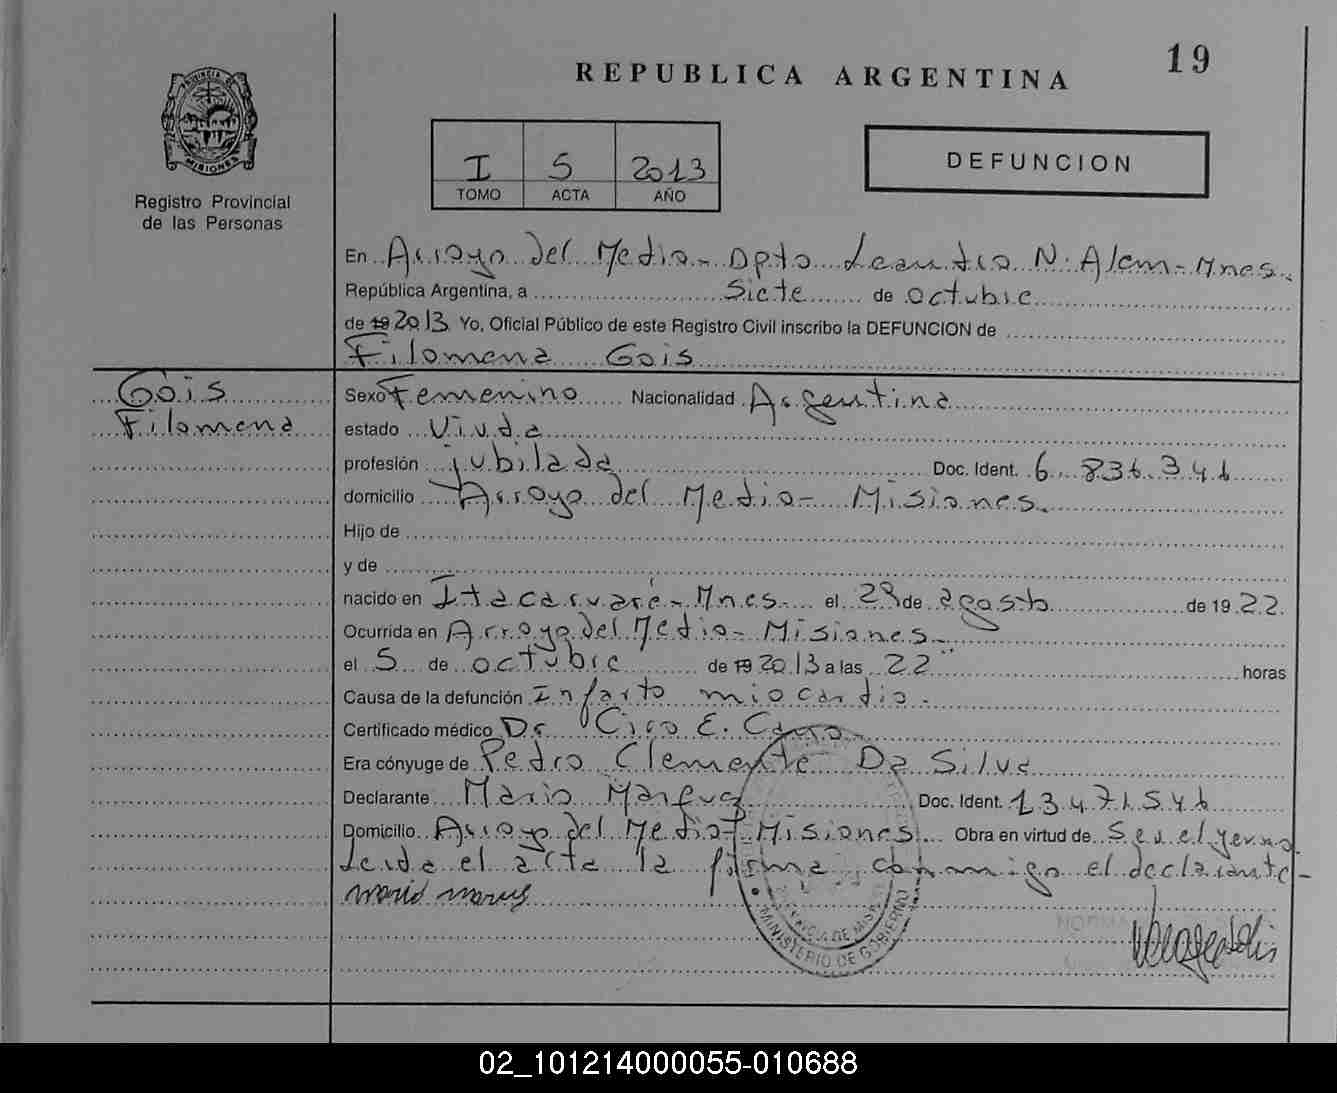 19
REPUBLICA ARGENTINA
PROVINCIA DE
MISIONES
Registro Provincial
de las Personas
I 5 2013
TOMO ACTA AÑO
DEFUNCION
En Arroyo del Medio - Dpto Leandro N. Alem - Mnes.
República Argentina, a siete de octubre
de 19 2013 Yo, Oficial Público de este Registro Civil inscribo la DEFUNCION de
Filomena Gois
Gois
Filomena
Sexo Femenino Nacionalidad Argentina
estado Viuda
profesión jubilada Doc. Ident. 6.836.346
domicilio Arroyo del Medio - Misiones.
Hijo de
y de
nacido en Itacaruaré - Mnes. el 29 de agosto de 1922.
Ocurrida en Arroyo del Medio - Misiones.
el 5 de octubre de 19 2013 a las 22 horas
Causa de la defunción Infarto miocardio.
Certificado médico Dr. Ciro E. Cano
Era cónyuge de Pedro Clemente Da Silva
Declarante Mario Doc. Ident. 13.471.546
Domicilio Arroyo del Medio - Misiones Obra en virtud de ser el yerno.
Leida el acta la firma conmigo el declarante -
MINISTERIO DE GOBIERNO
PROVINCIA DE MISIONES
02_101214000055-010688